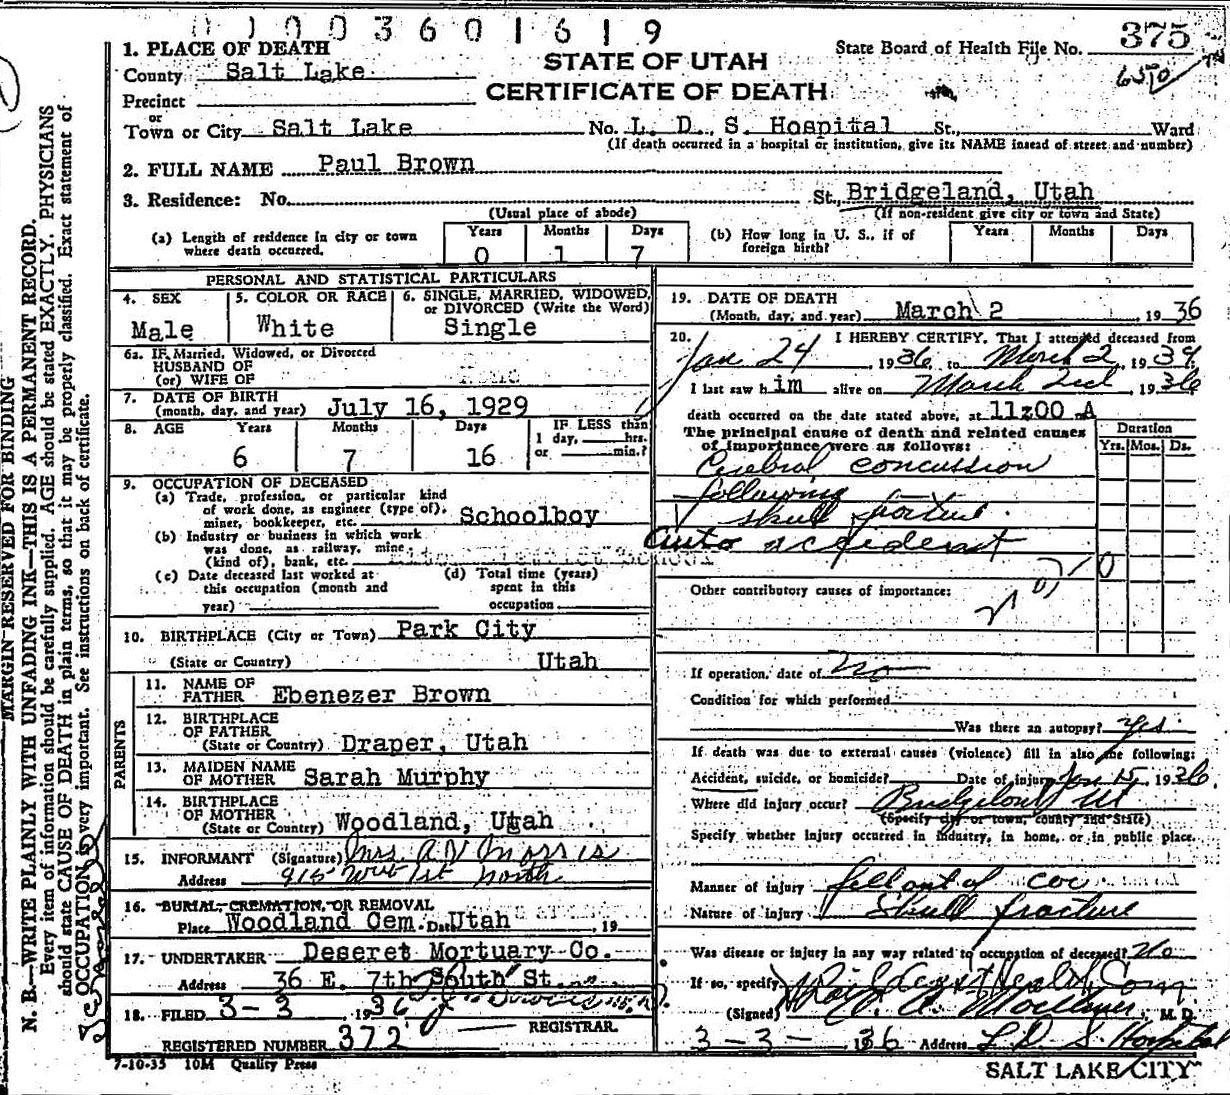 01003601619
1. PLACE OF DEATH
County Salt Lake
Precinct
or
Town or City Salt Lake No. L. D. S. Hospital St., Ward
(If death occurred in a hospital or institution, give its NAME insead of street and number)
STATE OF UTAH
CERTIFICATE OF DEATH
State Board of Health File No. 375
2. FULL NAME Paul Brown
3. Residence: No. St., Bridgeland, Utah
(Usual place of abode) (If non-resident give city or town and State)
(a) Length of residence in city or town where death occurred. Years 0 Months 1 Days 7
(b) How long in U. S., if of foreign birth? Years Months Days
PERSONAL AND STATISTICAL PARTICULARS
4. SEX Male
5. COLOR OR RACE White
6. SINGLE, MARRIED, WIDOWED, or DIVORCED (Write the Word) Single
6a. IF Married, Widowed, or Divorced
HUSBAND OF
(or) WIFE OF
7. DATE OF BIRTH
(month, day, and year) July 16, 1929
8. AGE Years 6 Months 7 Days 16
IF LESS than 1 day, hrs. or min.?
9. OCCUPATION OF DECEASED
(a) Trade, profession, or particular kind of work done, as engineer (type of), miner, bookkeeper, etc. Schoolboy
(b) Industry or business in which work was done, as railway, mine (kind of), bank, etc.
(c) Date deceased last worked at this occupation (month and year)
(d) Total time (years) spent in this occupation
10. BIRTHPLACE (City or Town) Park City
(State or Country) Utah
PARENTS
11. NAME OF FATHER Ebenezer Brown
12. BIRTHPLACE OF FATHER
(State or Country) Draper, Utah
13. MAIDEN NAME OF MOTHER Sarah Murphy
14. BIRTHPLACE OF MOTHER
(State or Country) Woodland, Utah
15. INFORMANT (Signature) Mrs. A V Morris
Address 915 West 1st North
16. BURIAL, CREMATION, OR REMOVAL
Place Woodland Cem. Date Utah 19
17. UNDERTAKER Deseret Mortuary Co.
Address 36 E. 7th South St.
18. FILED 3-3 1936
REGISTRAR.
REGISTERED NUMBER 372
7-10-35 10M Quality Press
19. DATE OF DEATH
(Month, day, and year) March 2, 1936
20. I HEREBY CERTIFY, That I attended deceased from
Jan 24, 1936, to March 2, 193
I last saw him alive on March 2nd, 1936
death occurred on the date stated above, at 11:00 A
The principal cause of death and related causes of importance were as follows:
Duration
Yrs. Mos. Ds.
Cerebral concussion
following
skull fracture.
Auto accident
Other contributory causes of importance:
If operation, date of No
Condition for which performed
Was there an autopsy? Yes
If death was due to external causes (violence) fill in also the following:
Accident, suicide, or homicide? Date of injury Jan 15, 1936
Where did injury occur? Bridgeland Ut
(Specify city or town, county and State)
Specify whether injury occurred in industry, in home, or in public place.
Manner of injury fell out of car
Nature of injury Skull fracture
Was disease or injury in any way related to occupation of deceased? No
If so, specify
(Signed) M. D.
3-3- 1936 Address L D S Hospital
SALT LAKE CITY
MARGIN RESERVED FOR BINDING
N. B.—WRITE PLAINLY WITH UNFADING INK—THIS IS A PERMANENT RECORD.
Every item of information should be carefully supplied. AGE should be stated EXACTLY. PHYSICIANS
should state CAUSE OF DEATH in plain terms, so that it may be properly classified. Exact statement of
OCCUPATION is very important. See instructions on back of certificate.